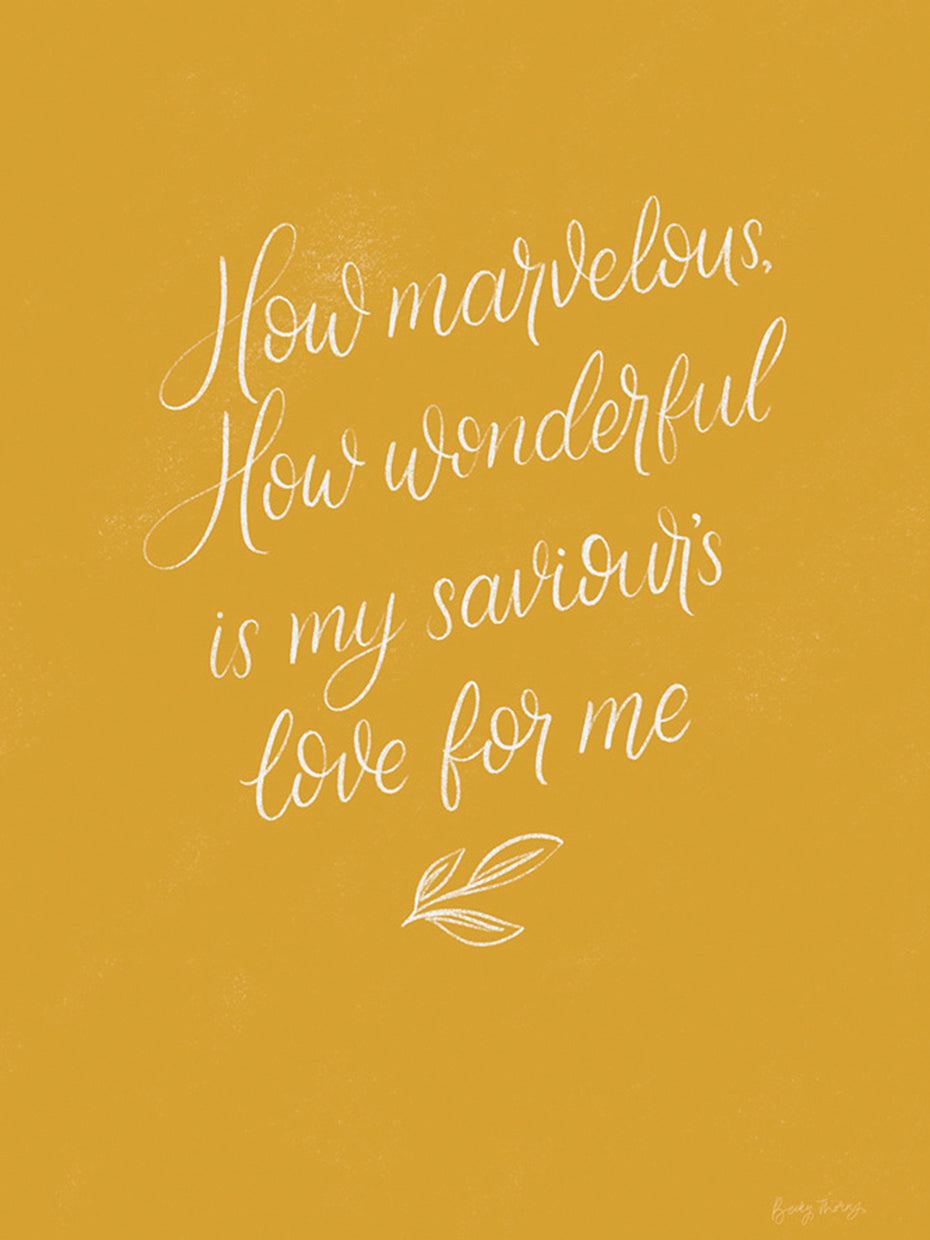 How marvelous,
How wonderful
is my saviour's
love for me
Becky Thorns